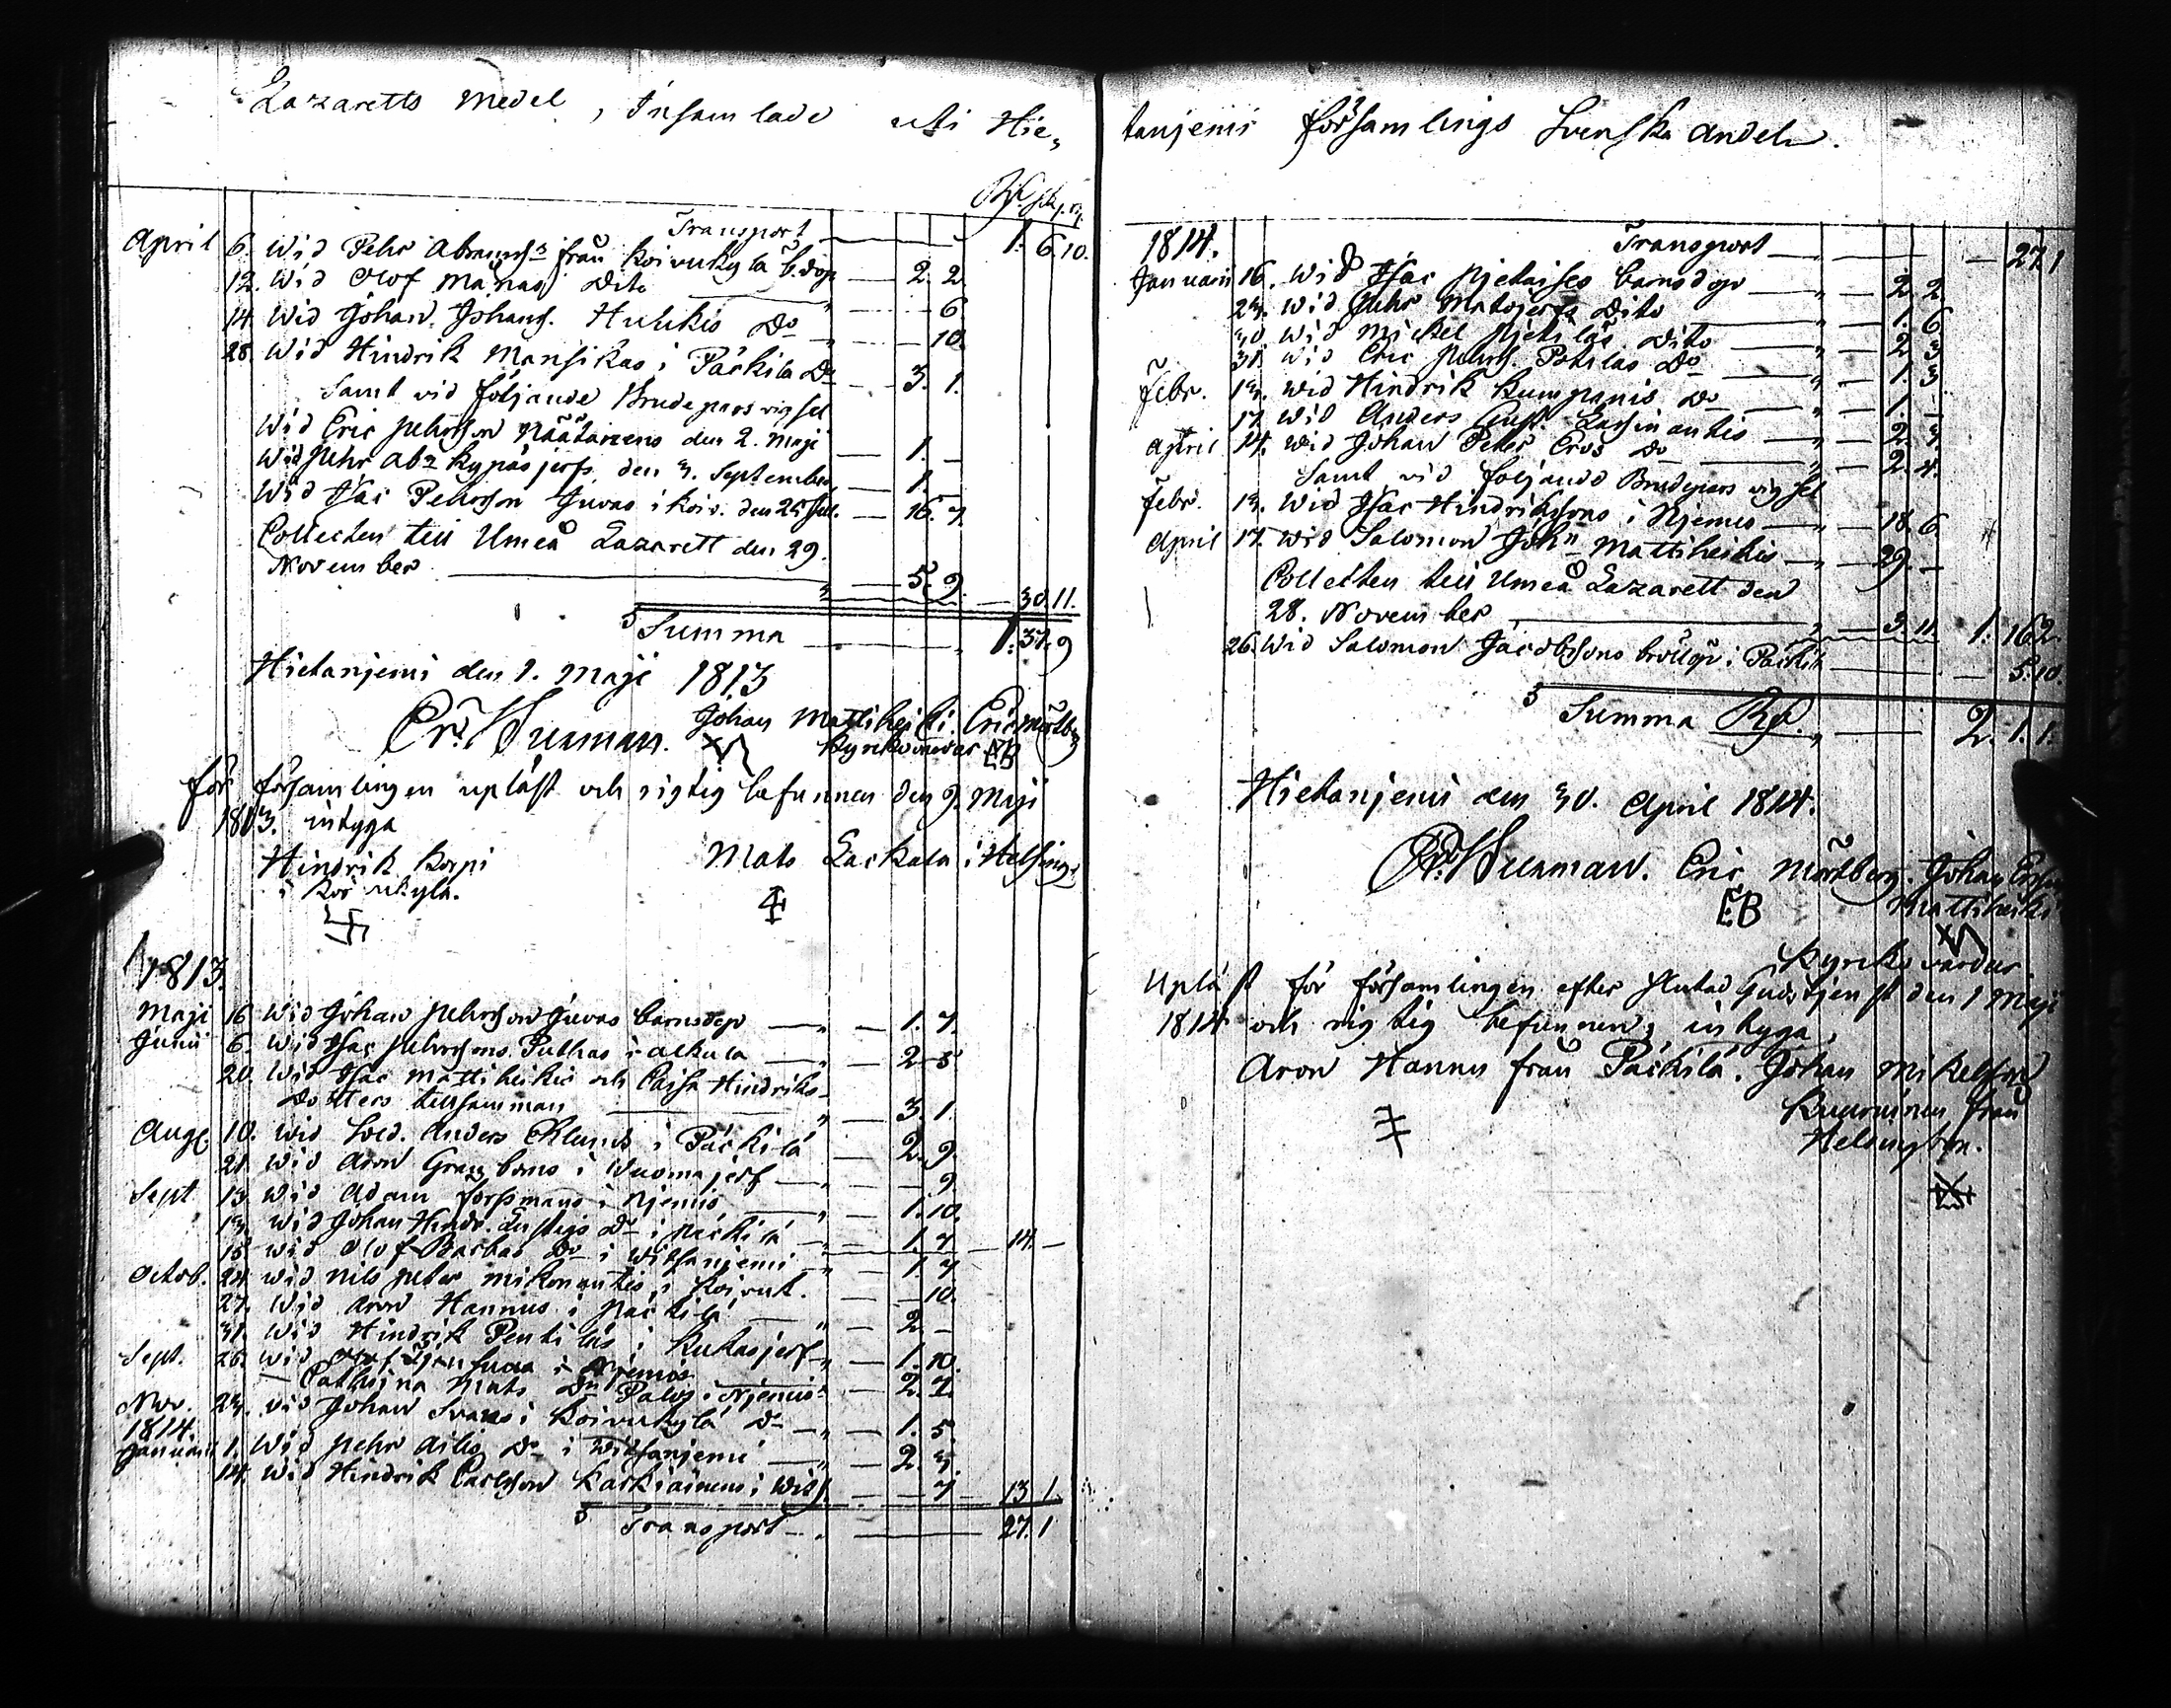 Lazaretts medel, Insamlade uti Hie-
Rd. sk. r.
Transport 1. 6. 10.
April 6. Wid Pehr Abramss från Koivukylä b.dop 2. 2.
12. Wid Olof Månas Dito 6
14. Wid Johan Johans. Huhkis Do 10.
28. Wid Hindrik Mansikas i Päckilä Do 3. 1.
Samt vid följande Brudepars vigsel
Wid Eric Pehrsson Näätäinens den 2. Maji 1. –
Wid Pehr Abm Kypäsjerfs den 3. September 1. –
Wid Isac Pehrsson Juvas i Koiv. den 25 16. 7.
Collecten till Umeå Lazarett den 29.
November 5. 9. 30. 11.
Summa 1. 37. 9
Hietanjemi den 1. Maji 1813
Er. Wunman. Johan Mattiheiki. Eric Mörtberg
Kyrkovärdar EB
för församlingen upläst och rigtig befunnen den 9. Maji
1813. intyga
Hindrik Korpi Mats Lackala i Helsing.
i Koivukylä.
1813.
Maji 16 Wid Johan Pehrsson Juvas barnsdop 1. 7.
Junii 6. Wid Isac Pehrssons Pulkas i Alkula 2. 5
20. Wid Isac Mattiheikis och Caisa Hindriks-
Dotters tillsamman 3. 1.
Aug. 10. Wid Sold. Anders Eklunds i Päckilä 2. 9.
21. Wid Aron Granboms i Wuomajerf 9
Sept 13. Wid Adam Forssmans i Njemis 1. 10.
13. Wid Johan Hindr. Lustigs Do i Päckilä 1. 7 14. –
15. Wid Olof Barbas Do i Witsanjemi 1. 7.
Octob. 24. Wid Nils Peter Mikonantis i Koivuk. 10.
27. Wid Aron Hannus i Päckilä 2. –
31. Wid Hindrik Pentiläs i Kukasjerf 1. 10.
Sept. 26. Wid Olof i Njemis
Cathrina Mats Dr Palos i Njemis 2. 7.
Nov. 23. vid Johan Svans i Koivukylä Do 1. 5.
1814.
Januarii 1. Wid Pehr Ailis Do i Witsanjemi 2. 3.
14. Wid Hindrik Carlsson Karkiainens i Wits 7 13. 1.
Transport 27. 1
tanjemi församlings Svenska andel.
1814. Transport 27. 1
Januarii 16. Wid Isac Njetaises barnsdop 2. 2
23. Wid Pehr Matojerfs Dito 1. 6
30. Wid Mickel Pjekiläs Dito 2. 3
31. Wid Eric Pehrs. Pohilas Do 1. 3
Febr. 13. Wid Hindrik Kumpanis Do 1. –
17. Wid Anders Lassinantis 2. 3.
April 14. Wid Johan Peter Eros Do 2. 4.
Samt vid följande Brudepars vigsel
Febr. 13. Wid Isac Hindrikssons i Njemis 18. 6.
April 17. Wid Salomon John Mattiheikis 29. –
Collecten till Umeå Lazarett den
28. November 3. 11. 1. 16 2.
26. Wid Salomon Jacobssons bröllop i Päckil. 5. 10.
Summa Rd. 2. 1. 1.
Hietanjemi den 30. April 1814.
Er. Wunman. Eric Mörtberg. Johan
EB Mattiheiki
Kyrkovärdar.
Upläst för församlingen efter slutad Gudstjenst den 1 Maji
1814 och rigtig befunnen; intyga,
Aron Hannu från Päckilä. Johan Mikelsson
Kuurainen från
Helsingbyn.